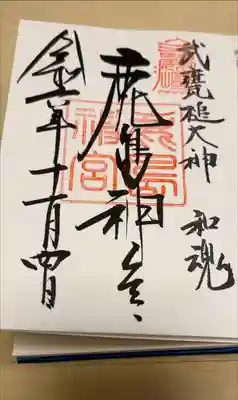 武甕槌大神 和魂
鹿島神宮
令和 年十一月四日
鹿島神宮